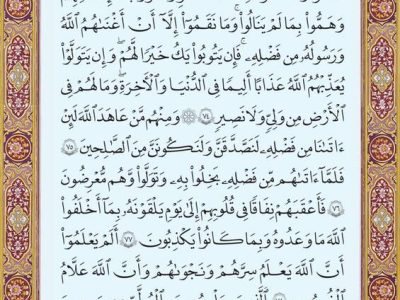 وَهَمُّوا۟ بِمَا لَمْ يَنَالُوا۟ۚ وَمَا نَقَمُوٓا۟ إِلَّآ أَنْ أَغْنَىٰهُمُ ٱللَّهُ
وَرَسُولُهُۥ مِن فَضْلِهِۦۚ فَإِن يَتُوبُوا۟ يَكُ خَيْرًا لَّهُمْۖ وَإِن يَتَوَلَّوْا۟
يُعَذِّبْهُمُ ٱللَّهُ عَذَابًا أَلِيمًا فِى ٱلدُّنْيَا وَٱلْـَٔاخِرَةِۚ وَمَا لَهُمْ فِى
ٱلْأَرْضِ مِن وَلِىٍّ وَلَا نَصِيرٍ ٧٤ ۞ وَمِنْهُم مَّنْ عَـٰهَدَ ٱللَّهَ لَئِنْ
ءَاتَىٰنَا مِن فَضْلِهِۦ لَنَصَّدَّقَنَّ وَلَنَكُونَنَّ مِنَ ٱلصَّـٰلِحِينَ ٧٥
فَلَمَّآ ءَاتَىٰهُم مِّن فَضْلِهِۦ بَخِلُوا۟ بِهِۦ وَتَوَلَّوا۟ وَّهُم مُّعْرِضُونَ
٧٦ فَأَعْقَبَهُمْ نِفَاقًا فِى قُلُوبِهِمْ إِلَىٰ يَوْمِ يَلْقَوْنَهُۥ بِمَآ أَخْلَفُوا۟
ٱللَّهَ مَا وَعَدُوهُ وَبِمَا كَانُوا۟ يَكْذِبُونَ ٧٧ أَلَمْ يَعْلَمُوٓا۟
أَنَّ ٱللَّهَ يَعْلَمُ سِرَّهُمْ وَنَجْوَىٰهُمْ وَأَنَّ ٱللَّهَ عَلَّـٰمُ